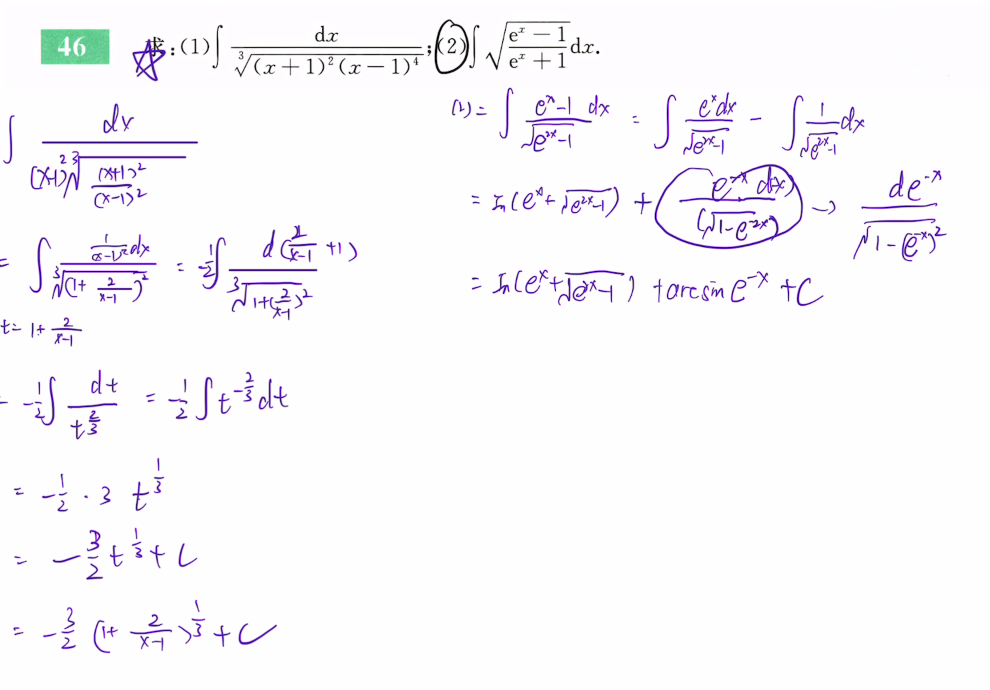 46 求:(1)∫ dx/∛((x+1)²(x−1)⁴);(2)∫ √((eˣ−1)/(eˣ+1)) dx.
∫ dx/((x-1)² ∛((x+1)²/(x-1)²))
= ∫ (1/(x-1)² dx)/∛((1+2/(x-1))²) = -1/2 ∫ d(2/(x-1)+1)/∛(1+(2/(x-1))²)
t= 1+ 2/(x-1)
= -1/2 ∫ dt/t^(2/3) = -1/2 ∫ t^(-2/3) dt
= -1/2 · 3 t^(1/3)
= -3/2 t^(1/3) + C
= -3/2 (1+ 2/(x-1))^(1/3) + C
(2) = ∫ (eˣ-1)/√(e²ˣ-1) dx = ∫ eˣdx/√(e²ˣ-1) - ∫ 1/√(e²ˣ-1) dx
= ln(eˣ+√(e²ˣ-1)) + (e⁻ˣ dx)/(√(1-e⁻²ˣ)) → de⁻ˣ/√(1-(e⁻ˣ)²)
= ln(eˣ+√(e²ˣ-1)) + arcsin e⁻ˣ + C